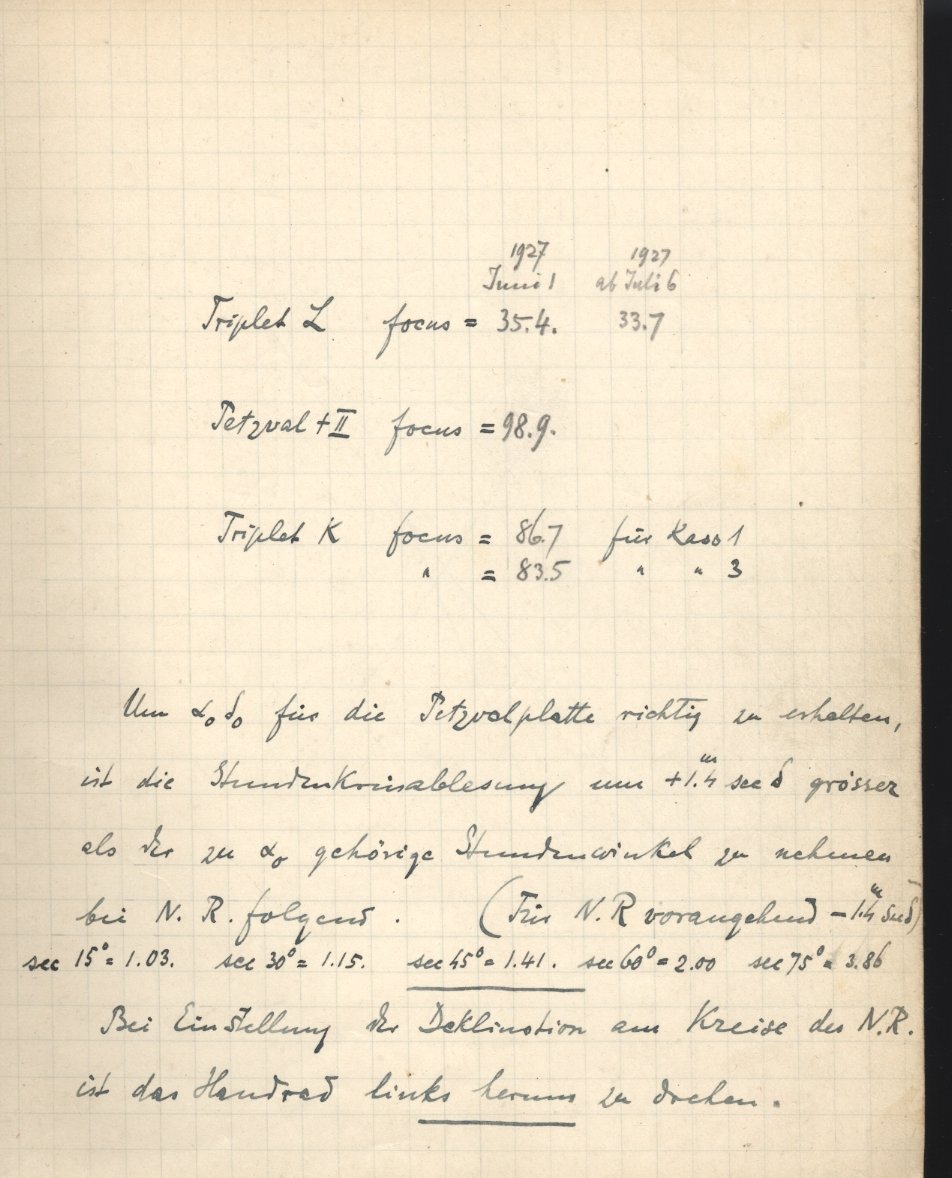 1927 1927
Juni 1 ab Juli 6
Triplet L focus = 35.4. 33.7
Petzval + II focus = 98.9.
Triplet K focus = 86.7 für Kass 1
" = 83.5 " " 3
Um α₀ δ₀ für die Petzvalplatte richtig zu erhalten,
ist die Stundenkreisablesung um +1.4ᵐ sec δ grösser
als der zu α₀ gehörige Stundenwinkel zu nehmen
bei N. R. folgend. (Für N. R vorangehend – 1.4ᵐ sec δ)
sec 15° = 1.03. sec 30° = 1.15. sec 45° = 1.41. sec 60° = 2.00 sec 75° = 3.86
Bei Einstellung der Deklination am Kreise des N.R.
ist das Handrad links herum zu drehen.